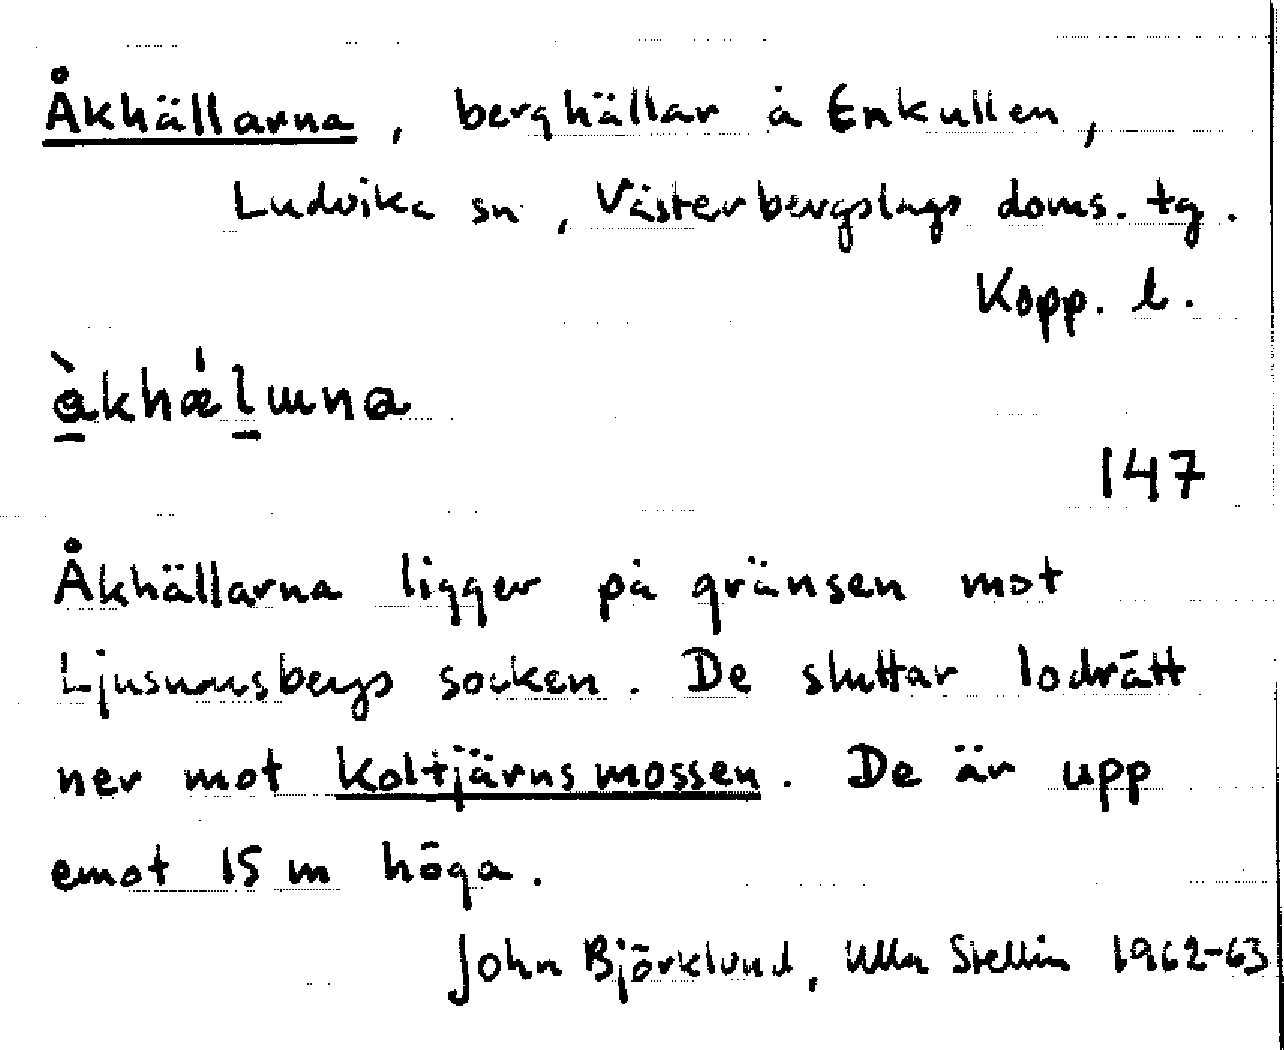 Åkhällarna, berghällar å Enkullen,
Ludvika sn, Västerbergslags doms. tg.
Kopp. l.
àkhǽlɯna
147
Åkhällarna ligger på gränsen mot
Ljusnarsbergs socken. De sluttar lodrätt
ner mot Koltjärnsmossen. De är upp
emot 15 m höga.
John Björklund, Ulla Stellin 1962-63